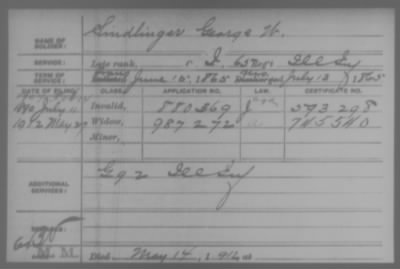 NAME OF SOLDIER: Sindlinger George W.
SERVICE: Late rank, c. I, 65 Reg't Ill Inf
TERM OF SERVICE: Enlisted June 15, 1865 Discharged July 13, 1865
DATE OF FILING. CLASS. APPLICATION NO. LAW. CERTIFICATE NO.
1890 July 11 Invalid, 880,369 J 593 298
1912 May 29 Widow, 987272 745540
Minor,
ADDITIONAL SERVICES: G 92 Ill Inf
REMARKS:
M M
Died May 14, 1912 at